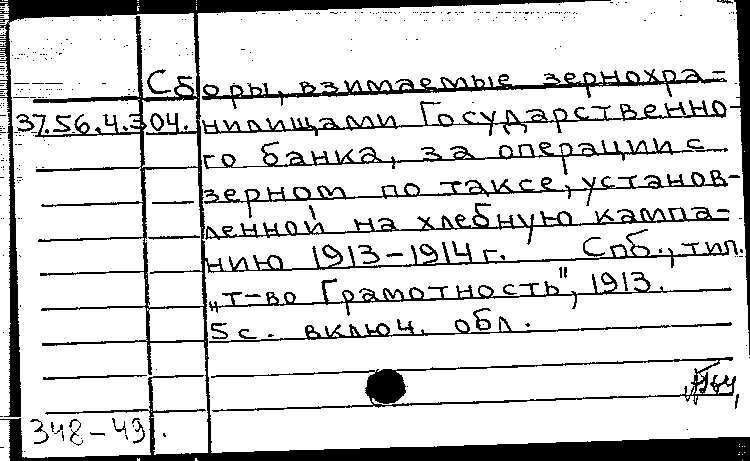 Сборы, взимаемые зернохра=
37.56.4.304. нилищами Государственно-
го банка, за операции с
зерном по таксе, установ-
ленной на хлебную кампа=
нию 1913-1914 г. Спб., тип.
„т-во Грамотность", 1913.
5 с. включ. обл.
348-49.